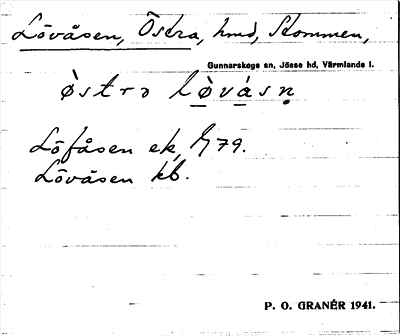 Lövåsen, Östra, hmd, Stommen,
Gunnarskogs sn, Jösse hd, Värmlands l.
òstrɔ lòvásn̥
Löfåsen ek, 79.
Lövåsen kb.
P. O. GRANÉR 1941.